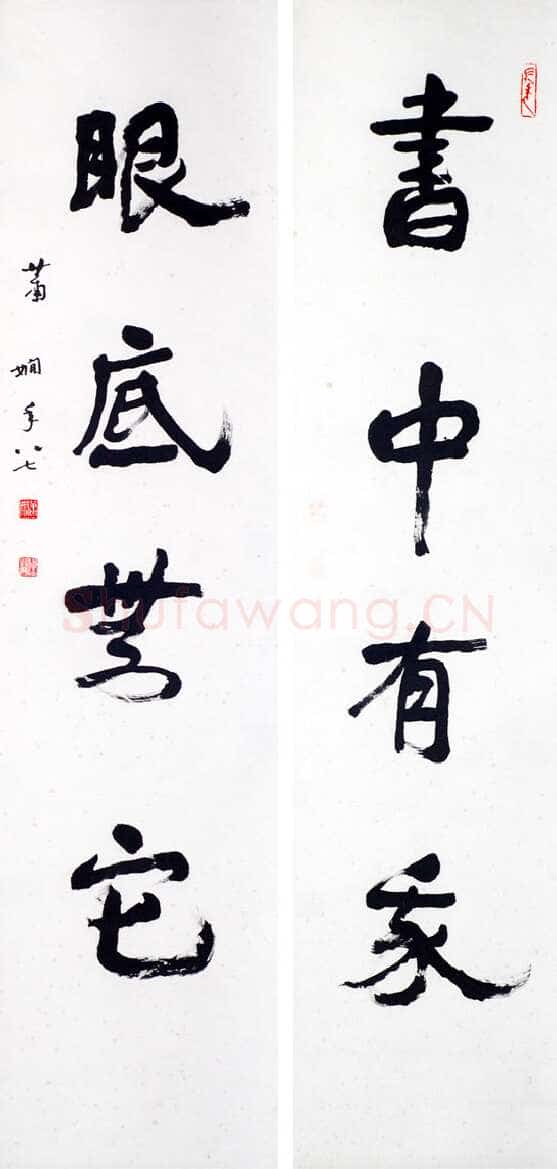 書中有我
眼底無它
蕭嫻年八七
Shufawang.CN